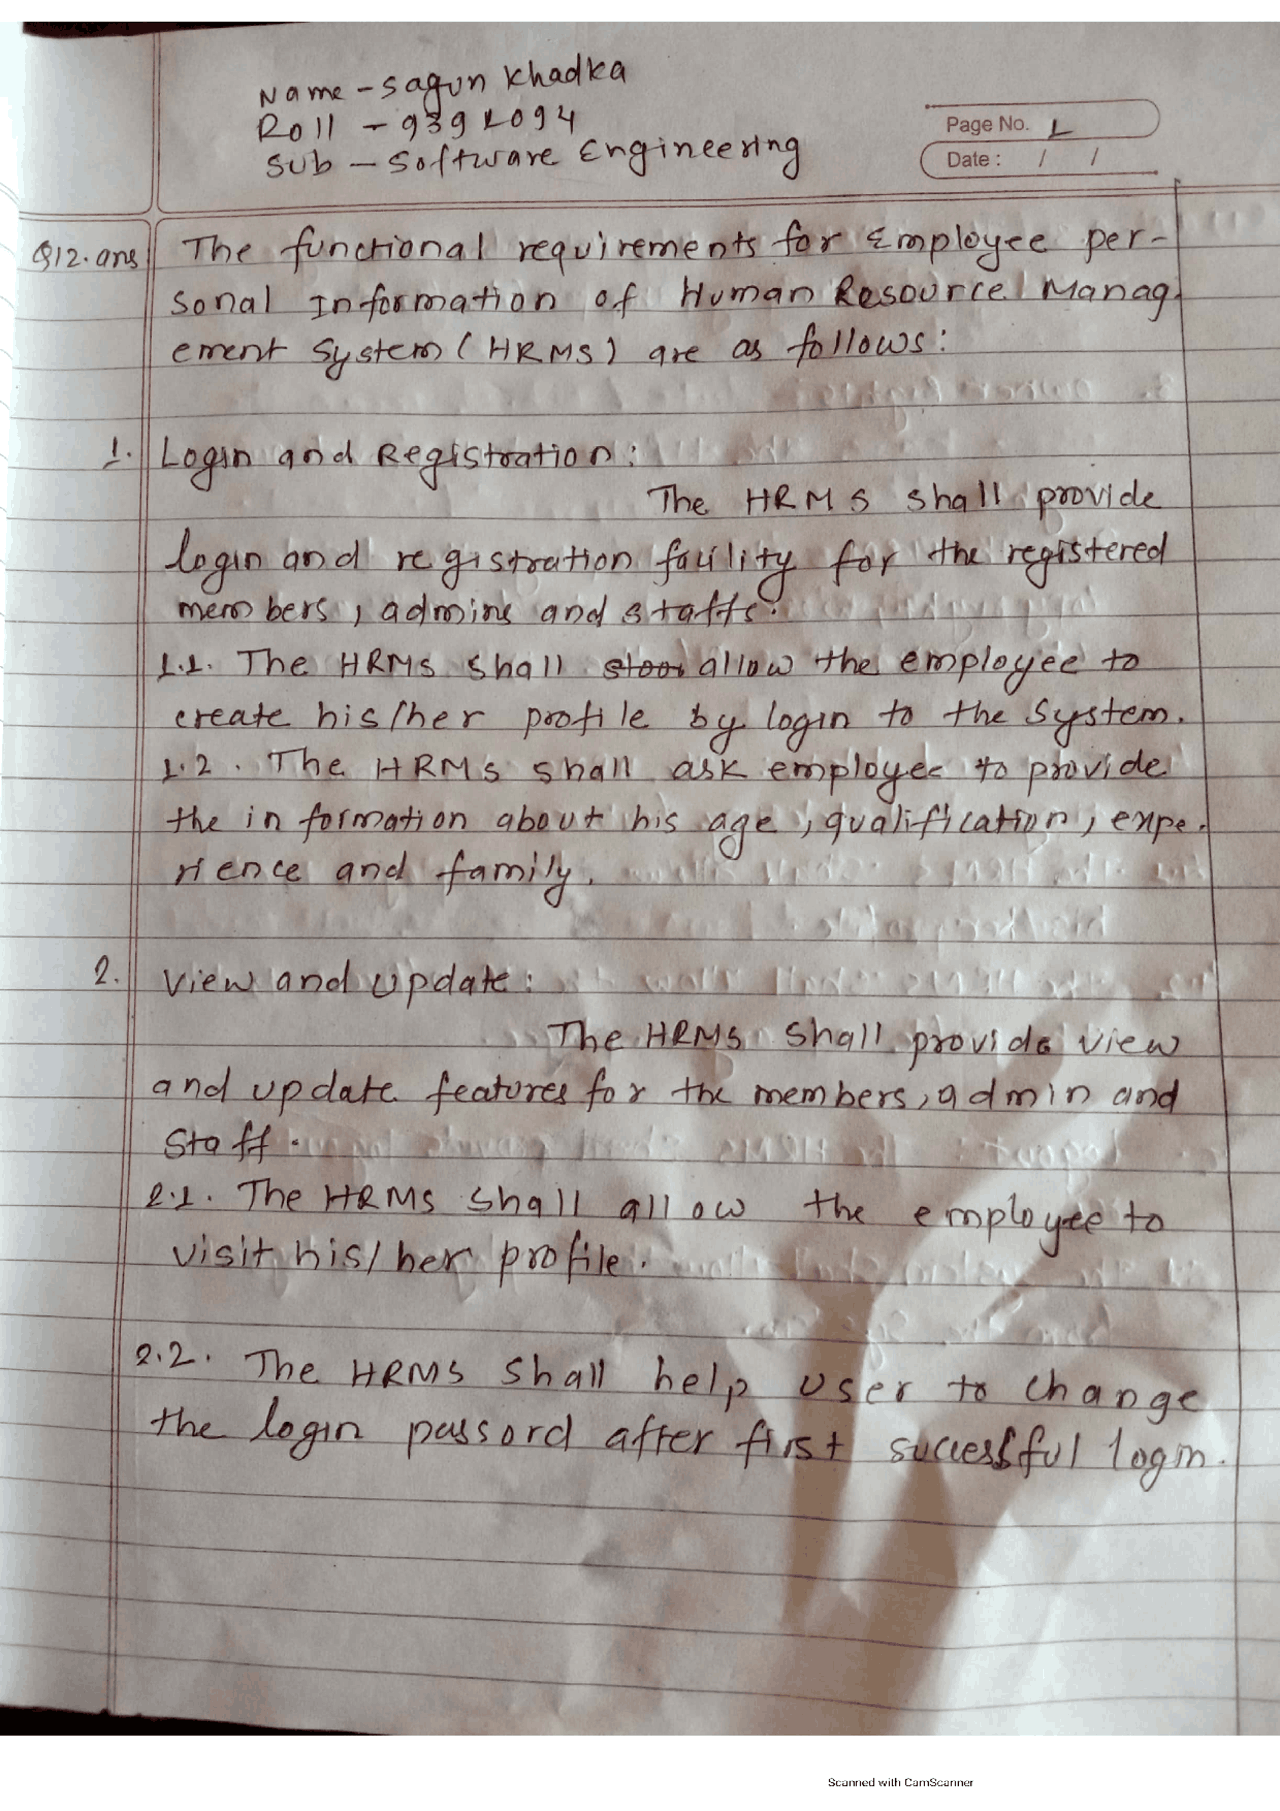 Name - Sagun Khadka
Roll - 9392094
Sub - Software Engineering
Page No. 1
Date : / /
Q12. ans The functional requirements for Employee per-
sonal Information of Human Resource Manag
ement System (HRMS) are as follows:
1. Login and Registration:
The HRMS shall provide
login and registration facility for the registered
members, admins and staffs.
1.1. The HRMS shall allow the employee to
create his/her profile by login to the system.
1.2. The HRMS shall ask employee to provide
the information about his age, qualification, expe-
rience and family.
2. View and Update:
The HRMS shall provide view
and update features for the members, admin and
Staff.
2.1. The HRMS shall allow the employee to
visit his/her profile.
2.2. The HRMS shall help user to change
the login passord after first successful login.
Scanned with CamScanner